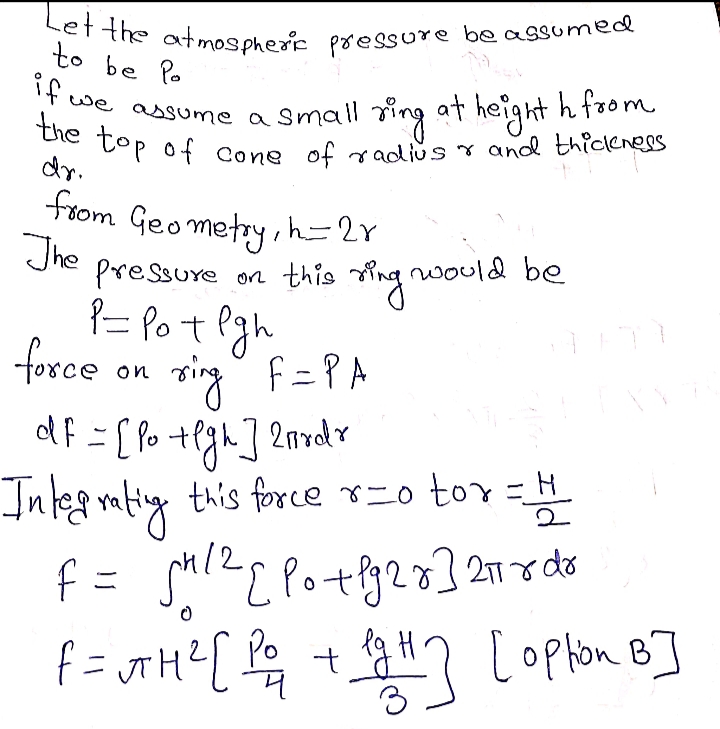 Let the atmospheric pressure be assumed
to be P₀
if we assume a small ring at height h from
the top of cone of radius r and thickness
dr.
from Geometry, h=2r
The pressure on this ring would be
P= P₀ + ρgh
force on ring F=PA
df = [P₀ + ρgh] 2πrdr
Integrating this force r=0 to r = H/2
f = ∫₀^{H/2} [P₀ + ρg2r] 2πrdr
f = πH² [P₀/4 + ρgH/3] [option B]